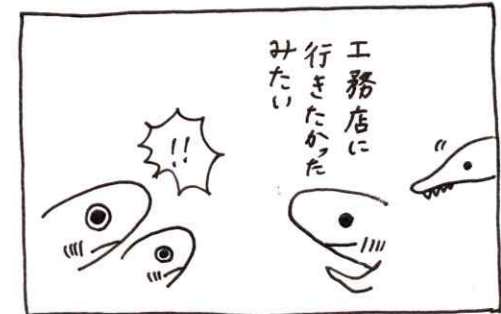 工務店に
行きたかった
みたい
!!